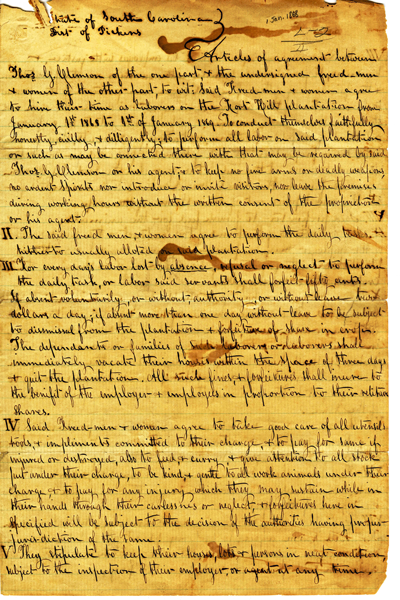 State of South Carolina
Dist of Pickens
1 Jan. 1868
Articles of agreement between
Thos. G. Clemson of the one part & the undersigned freed-men
& women of the other part, to wit: Said Freed-men & women agree
to hire their time as laborers on the Fort Hill plantation from
January 1st 1868 to 1st of January 1869. To conduct themselves faithfully
honestly, civilly, & diligently, to perform all labor on said plantation
or such as may be connected there with that may be required by said
Thos. G. Clemson or his agent, & to keep no fire arms or deadly weapons
no ardent spirits nor introduce or invite visitors, nor leave the premises
during working hours without the written consent of the proprietor
or his agent.
II. The said freed men & women agree to perform the daily tasks
hitherto usually alloted on said plantation.
III For every day's labor lost by absence, refusal or neglect to perform
the daily task, or labor said servants shall forfeit fifty cents.
If absent voluntarily, or without authority, or without leave two
dollars a day; if absent more than one day without leave to be subject
to dismissal from the plantation & forfeiture of share in crops.
The dependants or families of such laborers or laborers shall
immediately vacate their homes within the space of three days
& quit the plantation. All such fines & forfeitures shall inure to
the benifit of the employer & employees in proportion to their relative
shares.
IV Said Freed-men & women agree to take good care of all utensils
tools & impliments committed to their charge, & to pay for same if
injured or destroyed, also to feed & curry & give attention to all stock
put under their charge, to be kind & gentle to all work animals under their
charge & to pay for any injury which they may sustain while in
their hands through their carelessness or neglect, & forfeitures here in
specified will be subject to the decision of the authorities having proper
jurisdiction of the same.
V They stipulate to keep their houses, lots & persons in neat condition,
subject to the inspection of their employer, or agent at any time.